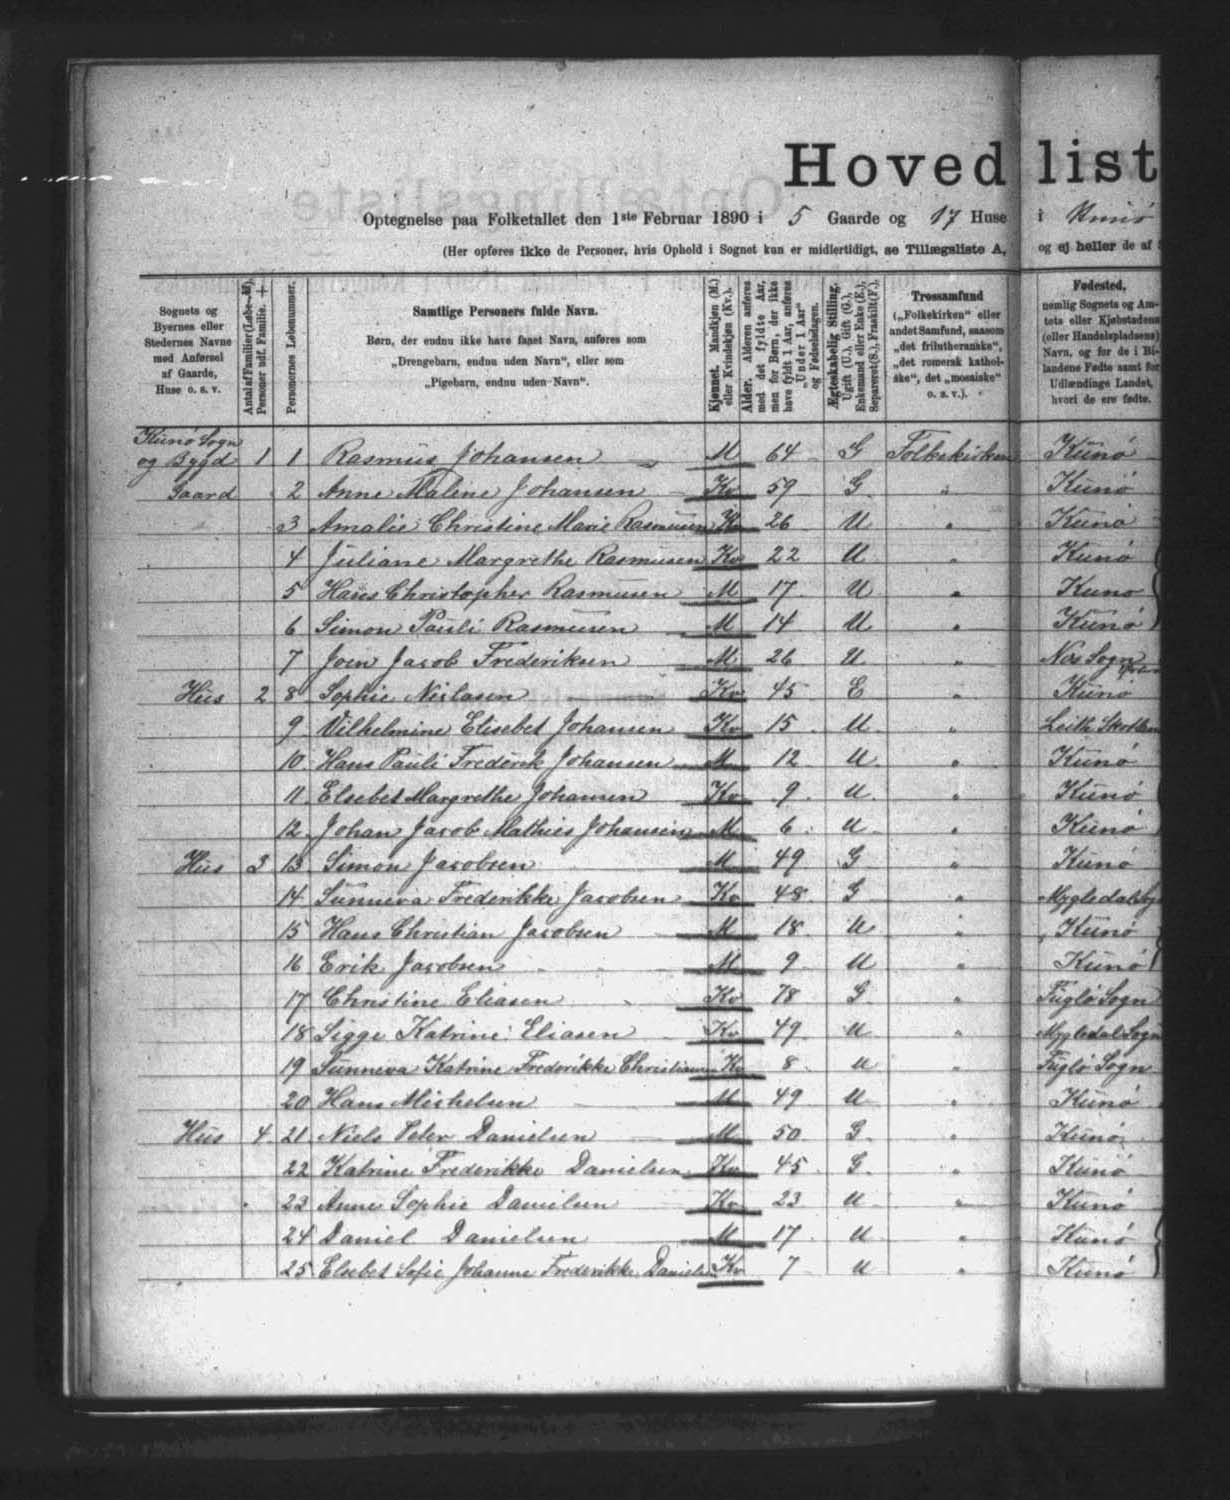 Hovedlist
Optegnelse paa Folketallet den 1ste Februar 1890 i 5 Gaarde og 17 Huse i Kunø
(Her opføres ikke de Personer, hvis Ophold i Sognet kun er midlertidigt, se Tillægsliste A, og ej heller de af
Sognets og Byernes eller Stedernes Navne med Anførsel af Gaarde, Huse o. s. v.
Antal af Familier (Løbe-№). Personer udf. Familie. +
Personernes Løbenummer.
Samtlige Personers fulde Navn.
Børn, der endnu ikke have faaet Navn, anføres som
„Drengebarn, endnu uden Navn“, eller som
„Pigebarn, endnu uden Navn“.
Kjønnet. Mandkjøn (M.) eller Kvindekjøn (Kv.).
Alder. Alderen anføres med det fyldte Aar, men for Børn, der ikke have fyldt 1 Aar, anføres „Under 1 Aar“ og Fødselsdagen.
Ægteskabelig Stilling. Ugift (U.), Gift (G.), Enkemand eller Enke (E.), Separeret (S.), Fraskilt (F.).
Trossamfund
(„Folkekirken“ eller andet Samfund, saasom „det frilutheranske“, „det romersk katholske“, det „mosaiske“ o. s. v.).
Fødested,
nemlig Sognets og Amtets eller Kjøbstadens (eller Handelspladsens) Navn, og for de i Bilandene Fødte samt for Udlændinge Landet, hvori de ere fødte.
Kunø Sogn
og Bygd 1 1 Rasmus Johansen M 64 G Folkekirken Kunø
Gaard 2 Anne Maline Johansen Kv 59 G " Kunø
3 Amalie Christine Marie Rasmusen Kv 26 U " Kunø
4 Juliane Margrethe Rasmusen Kv 22 U " Kunø
5 Hans Christopher Rasmusen M 17 U " Kunø
6 Simon Pauli Rasmusen M 14 U " Kunø
7 Joen Jacob Frederiksen M 26 U " Nes Sogn
Hus 2 8 Sophie Neilasen Kv 45 E Kunø
9 Vilhelmine Elisebet Johansen Kv 15 U " Leith
10 Hans Pauli Frederik Johansen M 12 U " Kunø
11 Elsebet Margrethe Johansen Kv 9 U " Kunø
12 Johan Jacob Mathies Johansen M 6 U " Kunø
Hus 3 13 Simon Jacobsen M 49 G " Kunø
14 Sunneva Frederikke Jacobsen Kv 48 G " Mygledalsby
15 Hans Christian Jacobsen M 18 U " Kunø
16 Erik Jacobsen M 9 U " Kunø
17 Christine Eliasen Kv 78 G " Fuglø Sogn
18 Sigge Katrine Eliasen Kv 49 U " Mygledal Sogn
19 Sunneva Katrine Frederikke Kv 8 U " Fuglø Sogn
20 Hans Michelsen M 49 U " Kunø
Hus 4 21 Niels Peter Danielsen M 50 G " Kunø
22 Katrine Frederikke Danielsen Kv 45 G " Kunø
23 Anne Sophie Danielsen Kv 23 U " Kunø
24 Daniel Danielsen M 17 U " Kunø
25 Elsebet Sofie Johanne Frederikke Danielsen Kv 7 U " Kunø